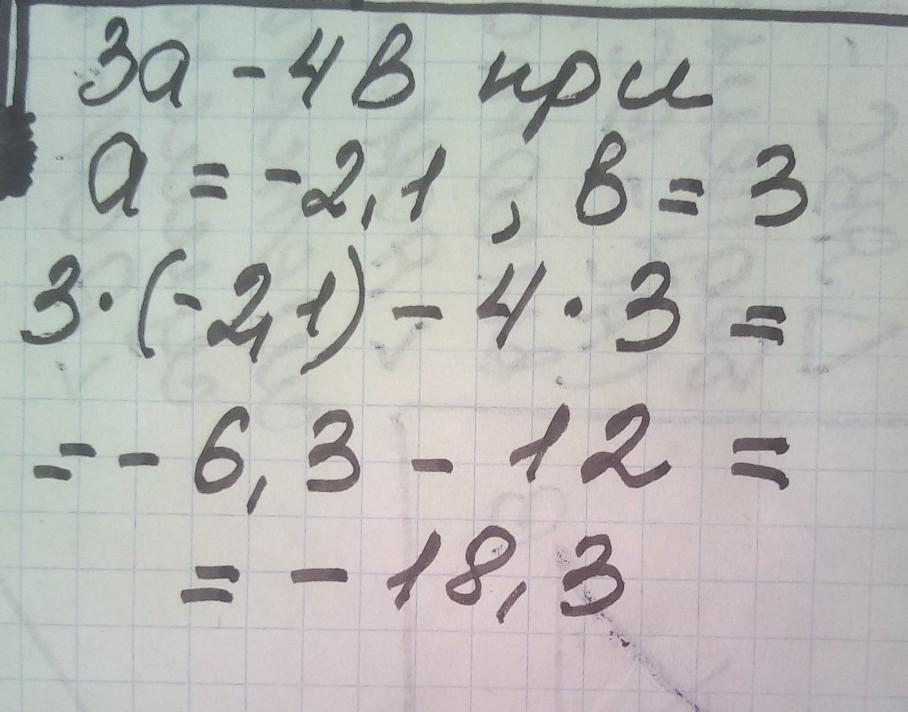 3а - 4в при
а = -2,1 , в = 3
3·(-2,1) - 4·3 =
= - 6,3 - 12 =
= - 18,3